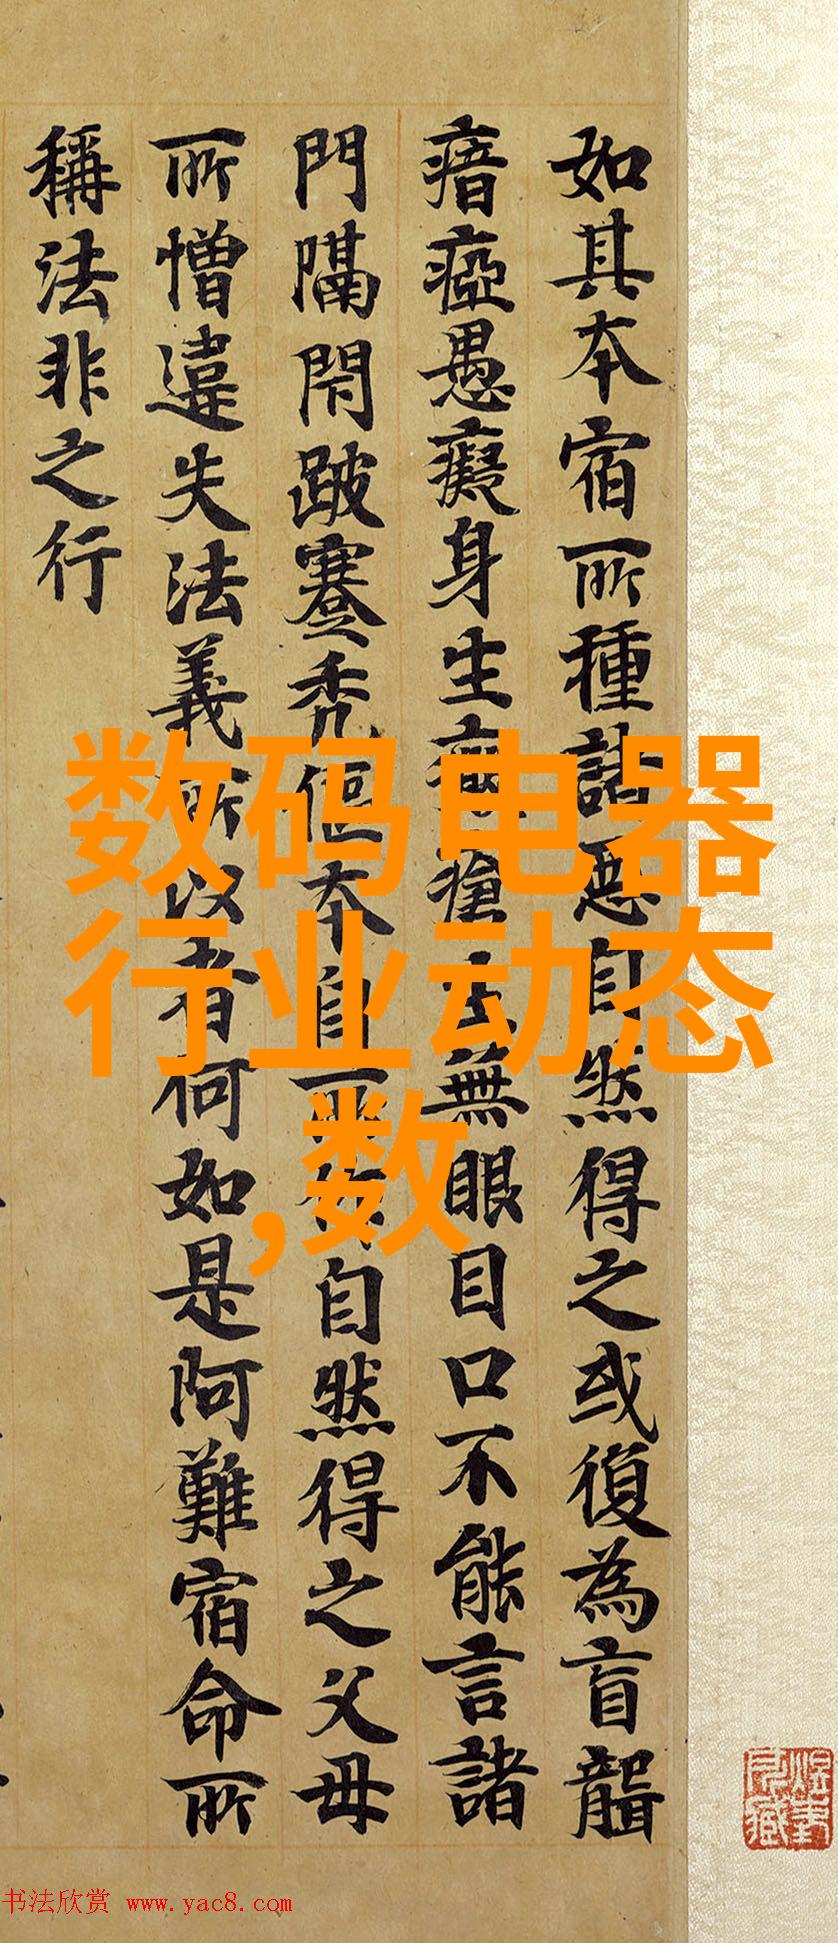 如其本宿所種諸惡自然得之或復為盲聾
瘖瘂愚癡身生瘡無眼目口不能言諸
門隔閇跛蹇秃傴本自所作自然得之父母
所憎違失法義所以者何如是阿難宿命所
稱法非之行
数码电器
行业动态
,数
书法欣赏 www.yac8.com